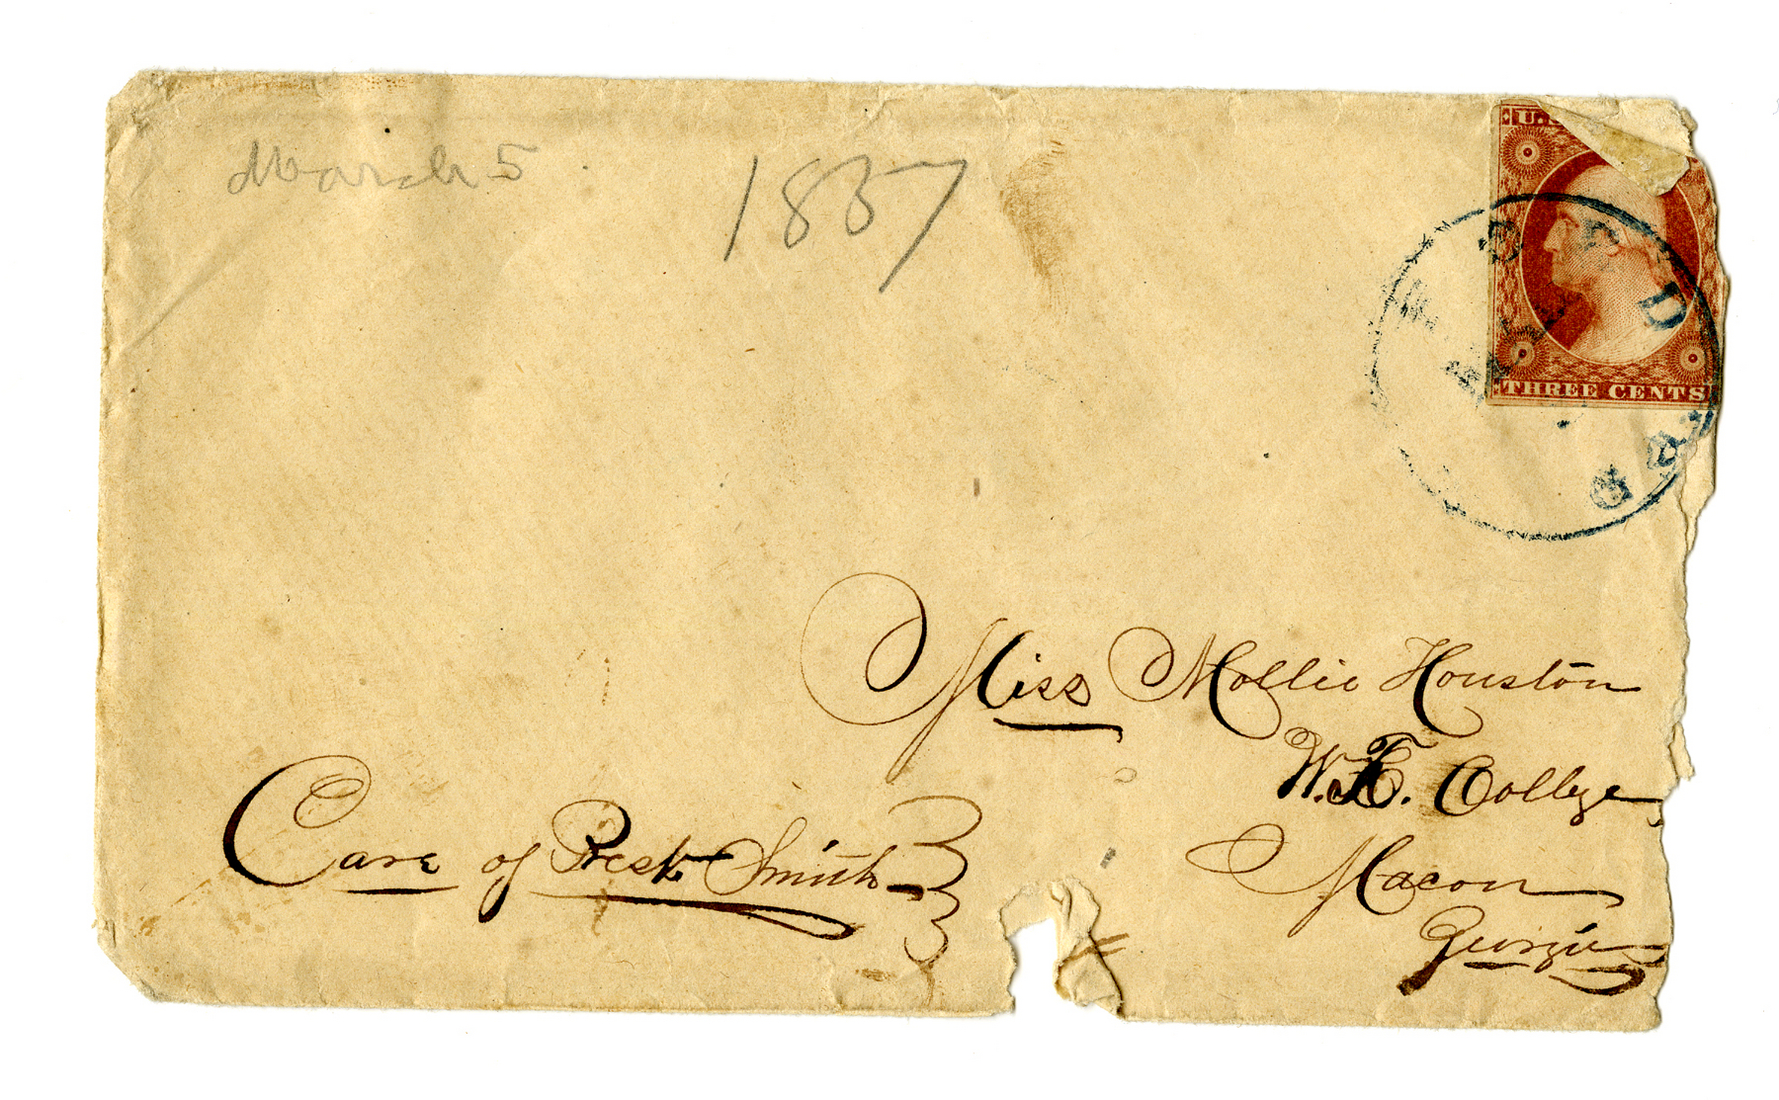 March 5
1857
U.S
THREE CENTS
Miss Mollie Houston
W. F. College,
Macon
Georgia
Care of Prest. Smith